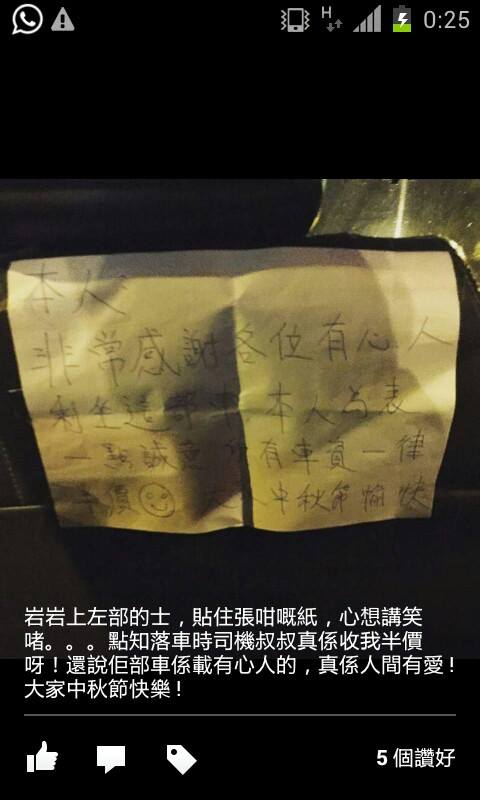 0:25
H
本人
非常感謝各位有心人
剩坐這部車,本人為表
一點誠意 所有車資一律
半價 大家中秋節愉快
岩岩上左部的士，貼住張咁嘅紙，心想講笑
啫。。。點知落車時司機叔叔真係收我半價
呀！還說佢部車係載有心人的，真係人間有愛！
大家中秋節快樂！
5 個讚好